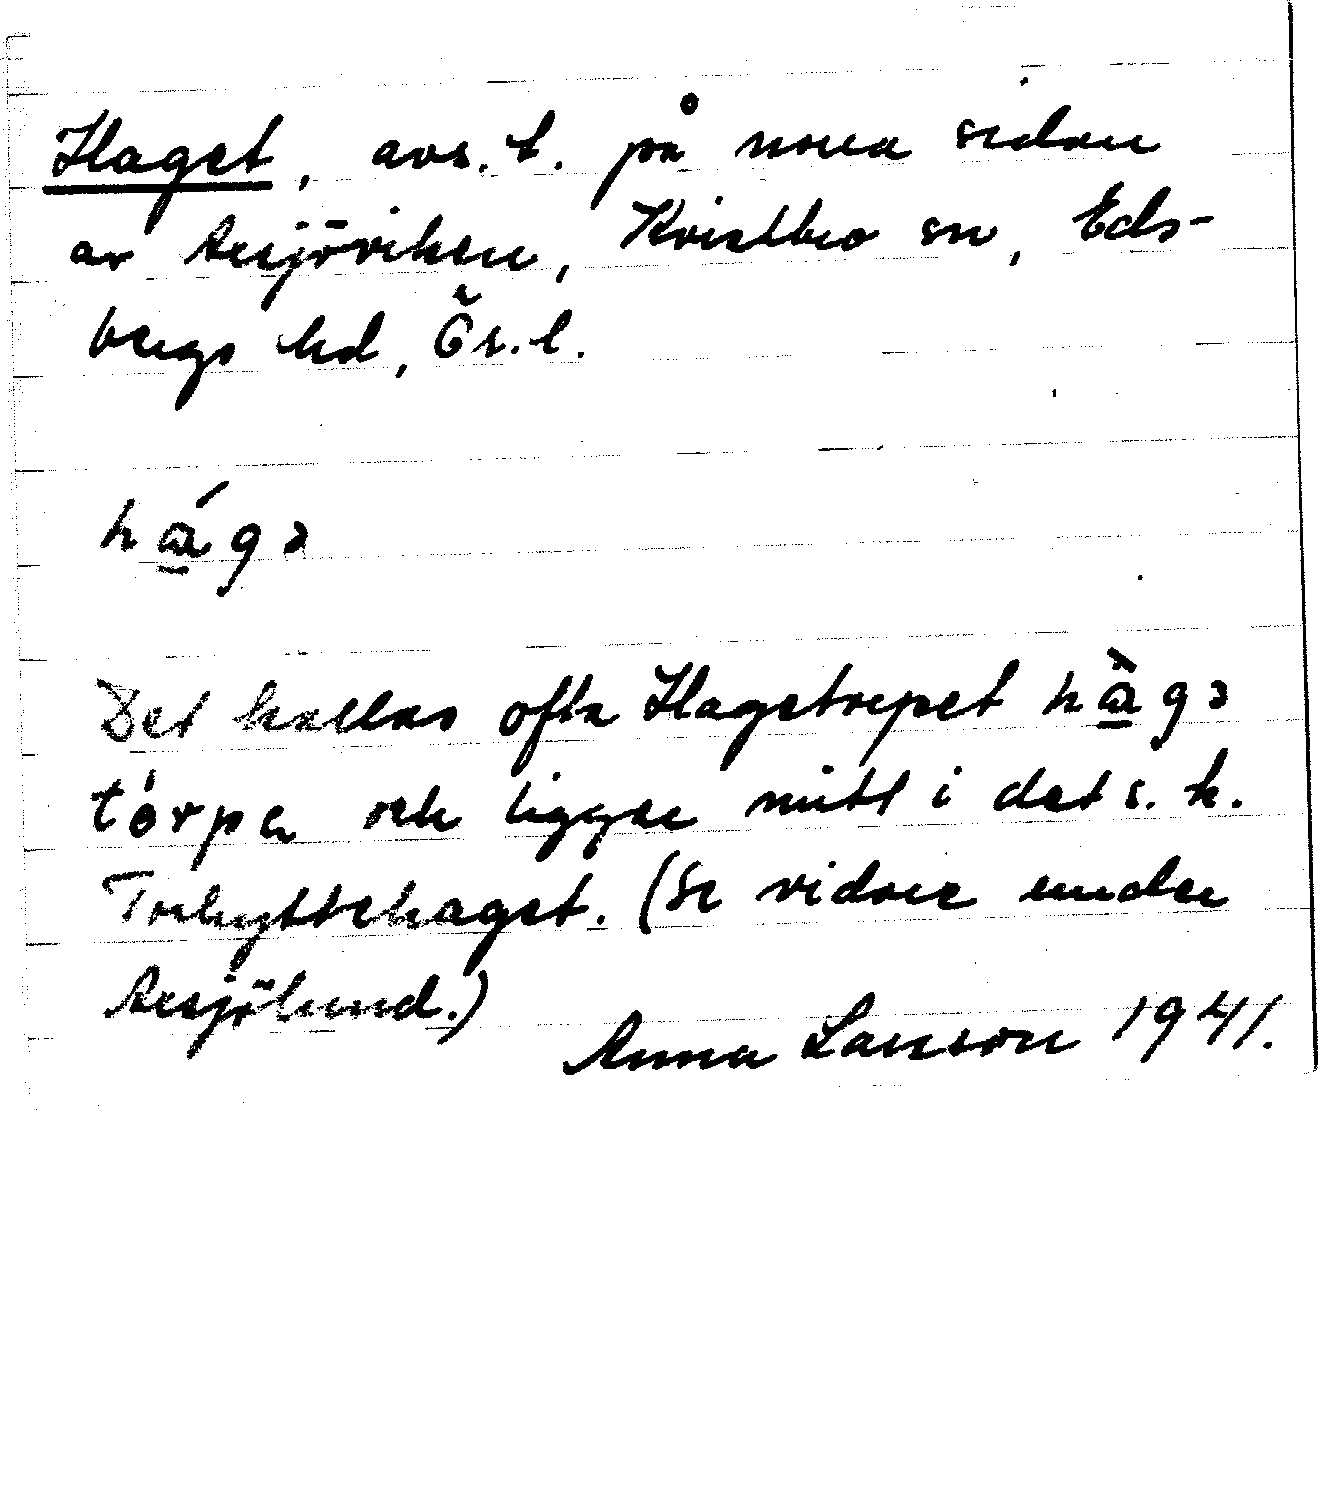 Haget, avs. t. på norra sidan
av Aspjöviken, Kvistbro sn, Eds-
bergs hd, Ör. l.
hágə
Det kallas ofta Hagetorpet hàgə
tórpa och ligger mitt i det s. k.
Torhyttehaget. (Se vidare under
Anna Larsson 1941.